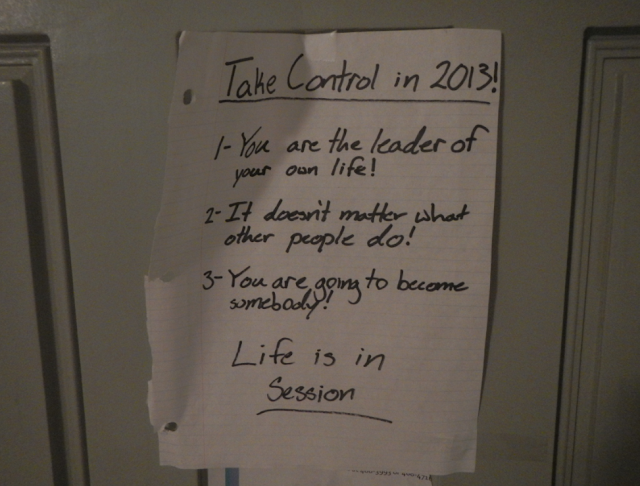 Take Control in 2013!
1- You are the leader of
your own life!
2- It doesn't matter what
other people do!
3- You are going to become
somebody!
Life is in
Session